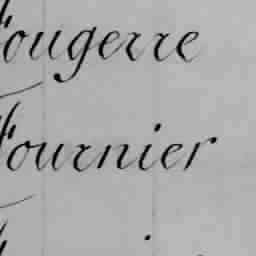 Fougerre
Fournier